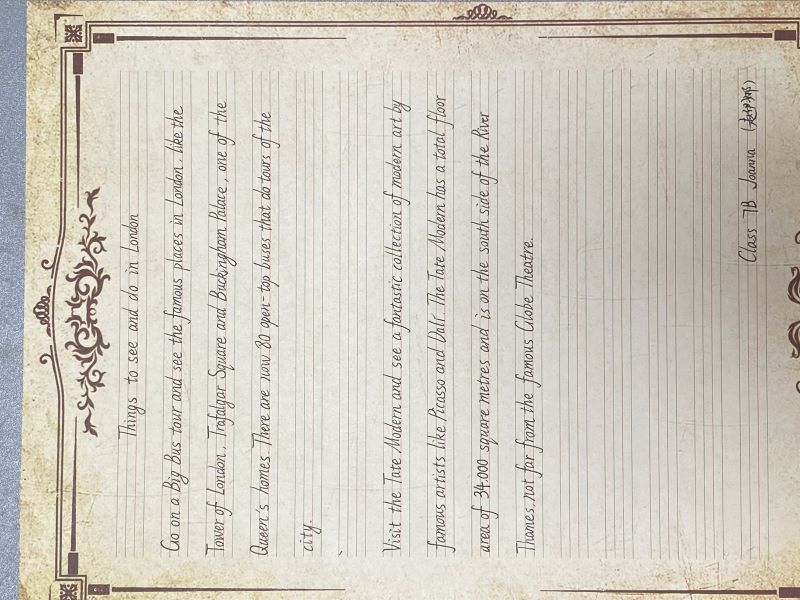 Things to see and do in London
Go on a Big Bus tour and see the famous places in London, like the
Tower of London, Trafalgar Square and Buckingham Palace, one of the
Queen's homes. There are now 80 open-top buses that do tours of the
city.
Visit the Tate Modern and see a fantastic collection of modern art by
famous artists like Picasso and Dalí. The Tate Modern has a total floor
area of 34,000 square metres and is on the south side of the River
Thames, not far from the famous Globe Theatre.
Class 7B Joanna (赵伊娜)